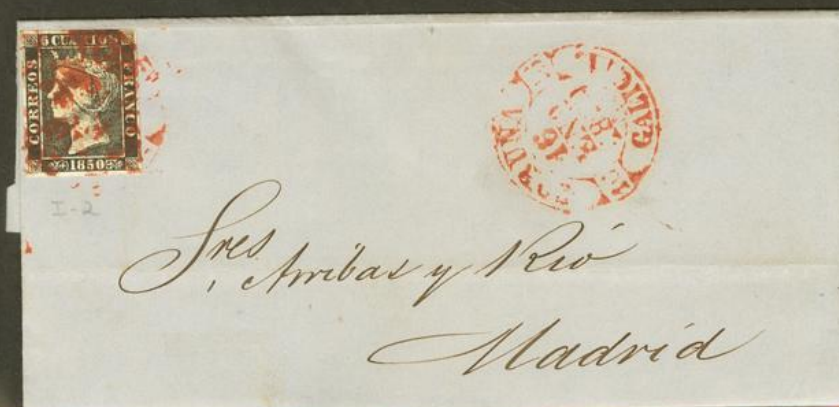 6 CUARTOS
CORREOS
FRANCO
1850
I-2
CORUÑA
GALICIA
Sres Arribas y Rió
Madrid